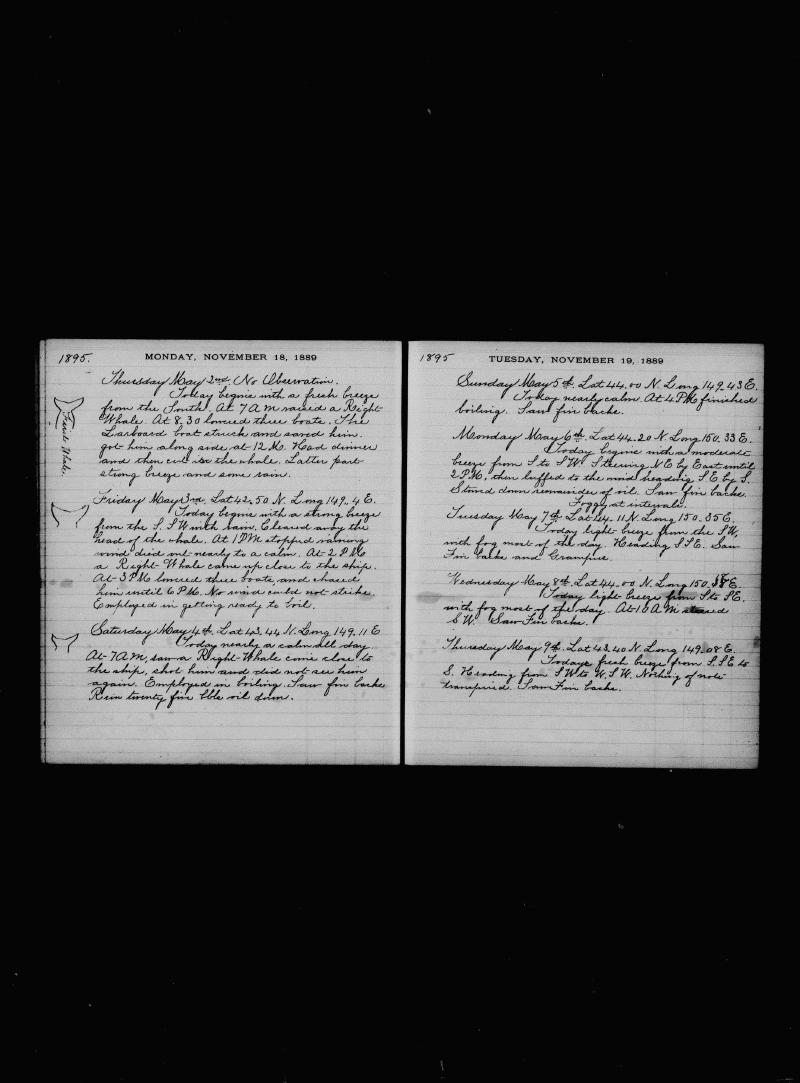 1895.
MONDAY, NOVEMBER 18, 1889
Thursday May 2nd. (No Observation.
Today begins with a fresh breeze
from the South. At 7 A M raised a Right
Whale. At 8.30 lowered three boats. The
Larboard boat struck and saved him.
got him along side at 12 M. Had dinner
and then cut in the whale. Latter part
strong breeze and some rain.
First Whale.
Friday May 3rd. Lat 42.50 N. Long 149.4 E.
Today begins with a strong breeze
from the S. S W with rain. Cleared away the
head of the whale. At 1 P M stopped raining
wind died out nearly to a calm. At 2 P M
a Right Whale came up close to the ship.
At 3 P M lowered three boats, and chased
him until 6 P M. No wind could not strike.
Employed in getting ready to boil.
Saturday May 4th. Lat 43.44 N. Long 149.11 E
Today nearly a calm all day.
At 7 A M, saw a Right Whale come close to
the ship, shot him and did not see him
again. Employed in boiling. Saw fin backs
Run twenty five bbls oil down.
1895
TUESDAY, NOVEMBER 19, 1889
Sunday May 5th. Lat 44.00 N. Long 149.43 E.
Today nearly calm. At 4 P M finished
boiling. Saw fin backs.
Monday May 6th. Lat 44.20 N. Long 150.33 E.
Today begins with a moderate
breeze from S to S W. Steering N E by East until
2 P M, then luffed to the wind heading S E by S.
Stowed down remainder of oil. Saw fin backs.
Foggy at intervals.
Tuesday May 7th. Lat 44.11 N. Long 150.35 E.
Today light breeze from the S W,
with fog most of the day. Heading S S E. Saw
Fin backs and Grampus.
Wednesday May 8th. Lat 44.00 N. Long 150. E.
Today light breeze from S to S E.
with fog most of the day. At 10 A M
S W. Saw Fin backs.
Thursday May 9th. Lat 43.40 N. Long 149.08 E.
Today fresh breeze from S. S E to
S. Heading from S W to W. S W. Nothing of note
transpired. Saw Fin backs.